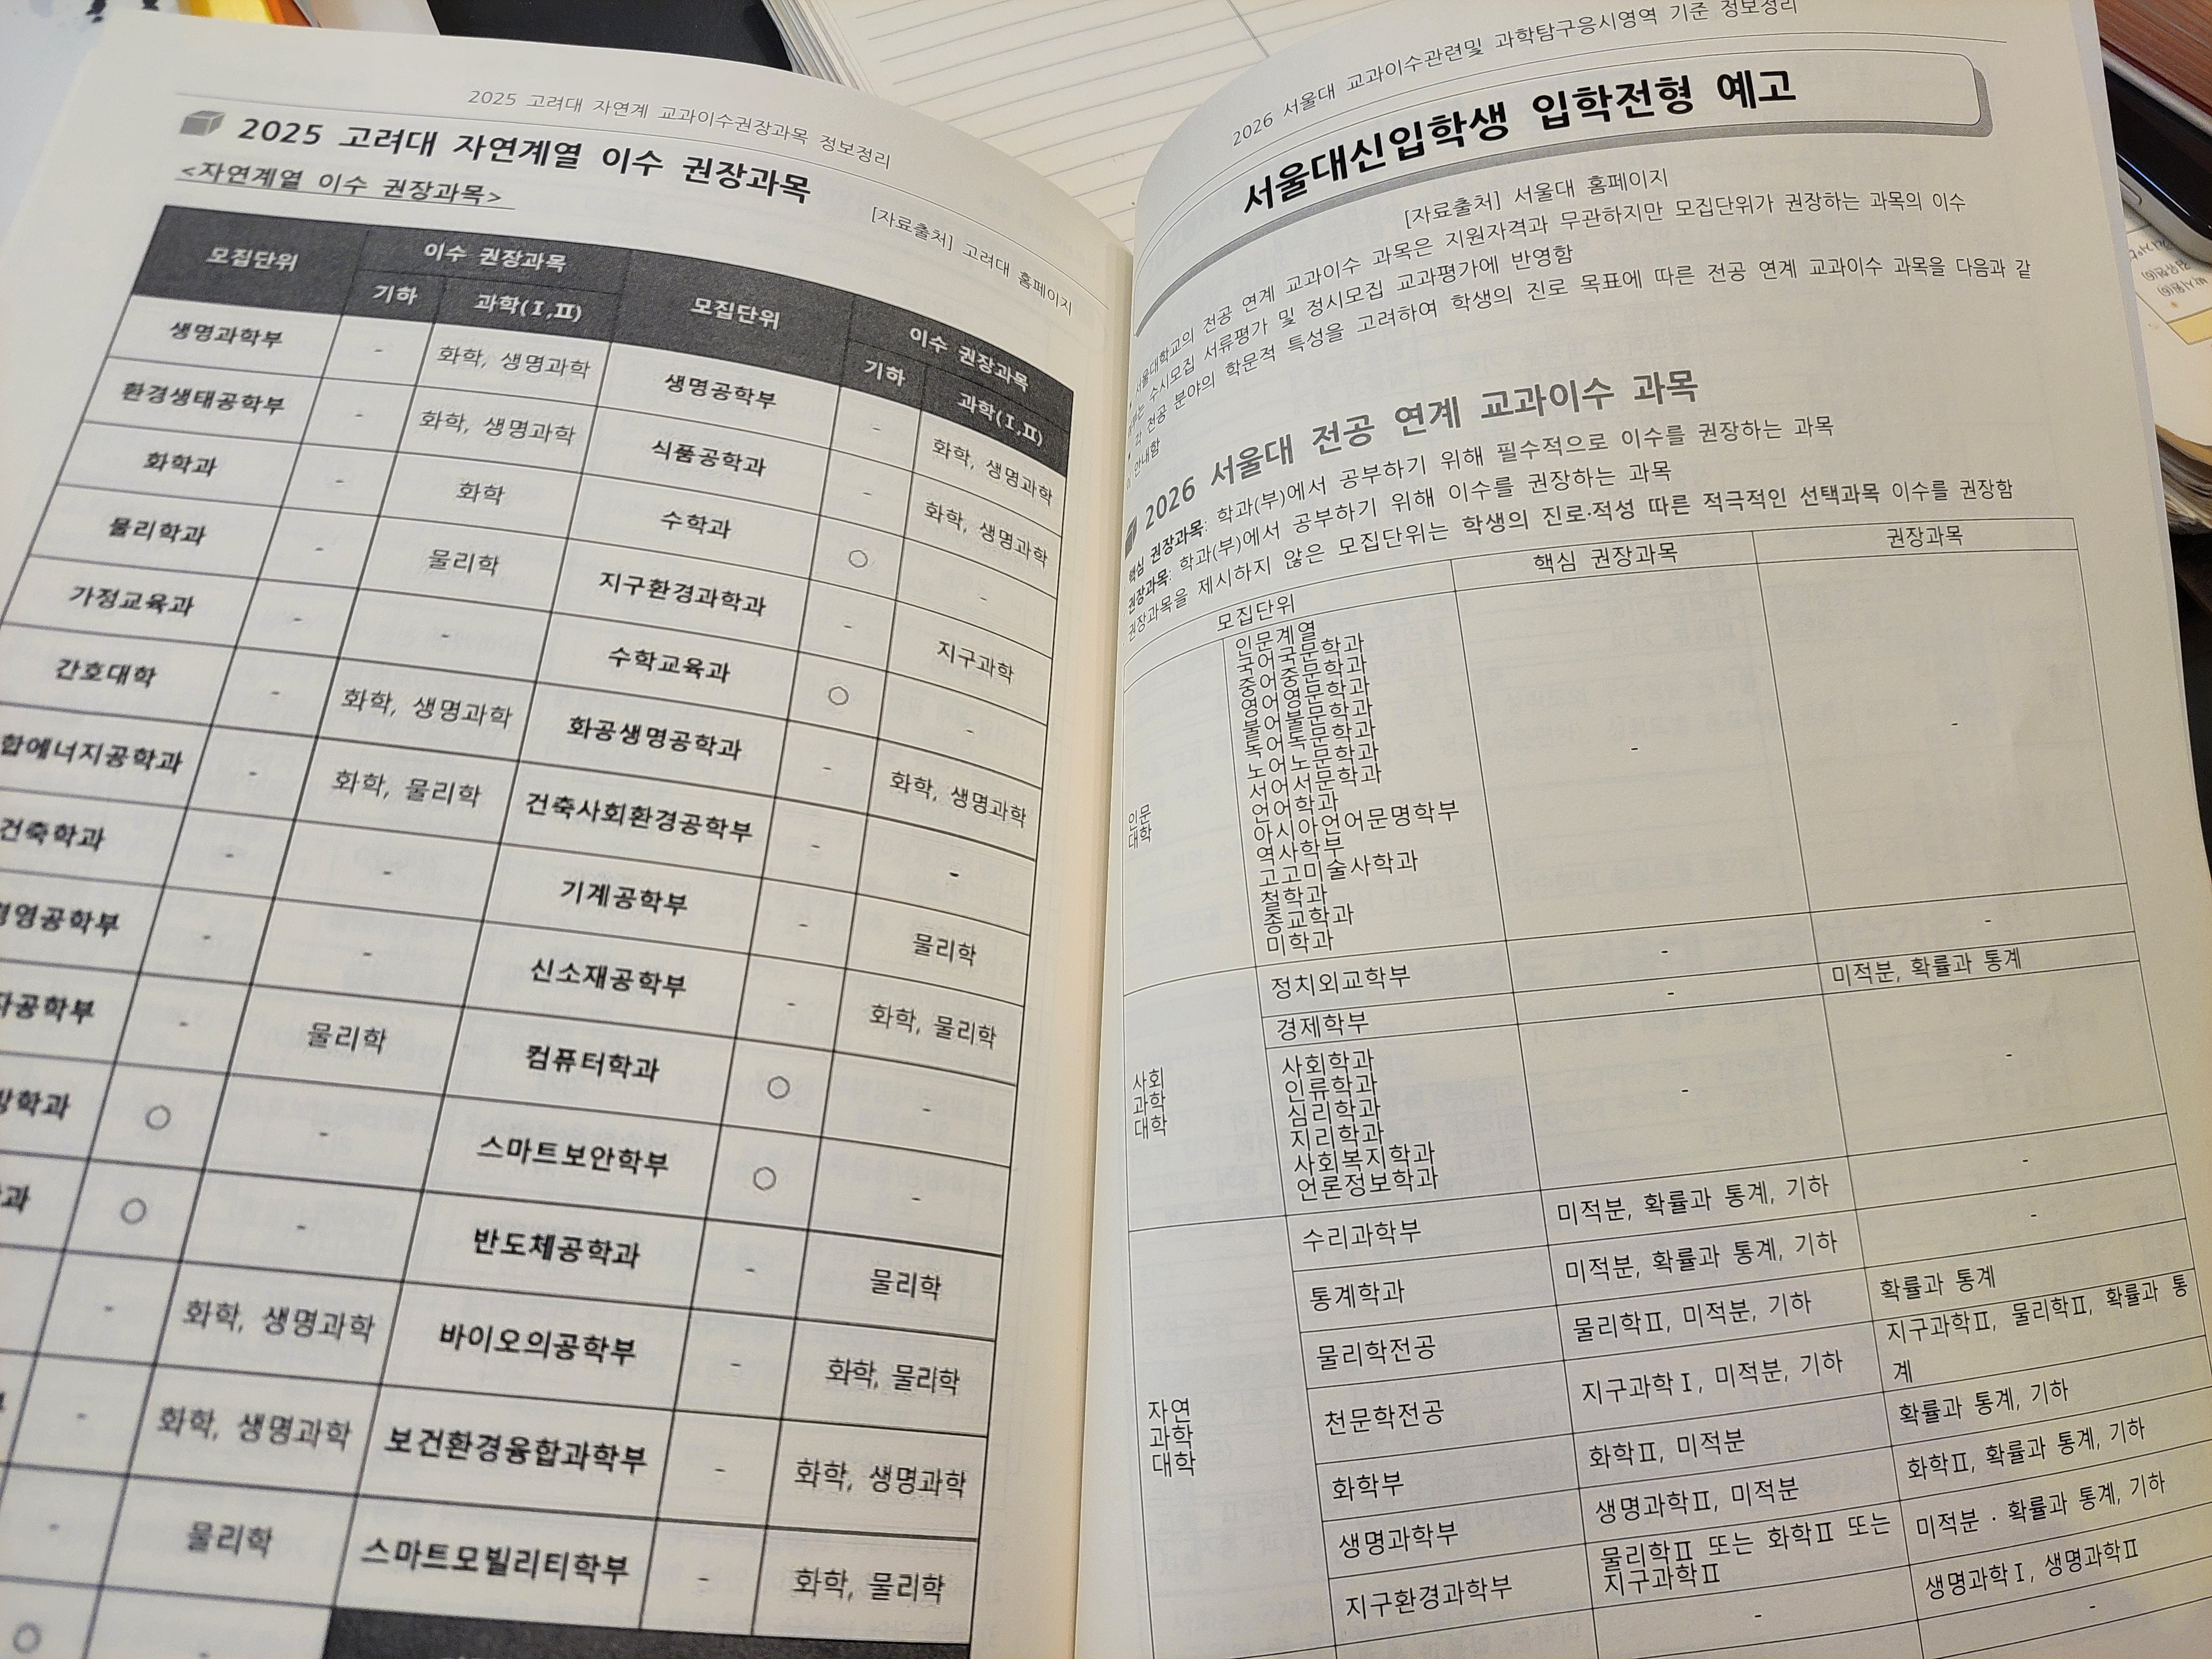 2025 고려대 자연계 교과이수권장과목 정보정리
2025 고려대 자연계열 이수 권장과목
<자연계열 이수 권장과목>
[자료출처] 고려대 홈페이지
모집단위 이수 권장과목 모집단위 이수 권장과목
기하 과학(Ⅰ,Ⅱ) 기하 과학(Ⅰ,Ⅱ)
생명과학부 - 화학, 생명과학 생명공학부 - 화학, 생명과학
환경생태공학부 - 화학, 생명과학 식품공학과 - 화학, 생명과학
화학과 - 화학 수학과 ○ -
물리학과 - 물리학 지구환경과학과 - 지구과학
가정교육과 - - 수학교육과 ○ -
간호대학 - 화학, 생명과학 화공생명공학과 - 화학, 생명과학
합에너지공학과 - 화학, 물리학 건축사회환경공학부 - -
건축학과 - - 기계공학부 - 물리학
영공학부 - - 신소재공학부 - 화학, 물리학
공학부 - 물리학 컴퓨터학과 ○ -
학과 ○ - 스마트보안학부 ○ -
과 ○ - 반도체공학과 - 물리학
- 화학, 생명과학 바이오의공학부 - 화학, 물리학
- 화학, 생명과학 보건환경융합과학부 - 화학, 생명과학
- 물리학 스마트모빌리티학부 - 화학, 물리학
○ -
2026 서울대 교과이수관련및 과학탐구응시영역 기준 정보정리
서울대신입학생 입학전형 예고
[자료출처] 서울대 홈페이지
• 서울대학교의 전공 연계 교과이수 과목은 지원자격과 무관하지만 모집단위가 권장하는 과목의 이수
는 수시모집 서류평가 및 정시모집 교과평가에 반영함
• 각 전공 분야의 학문적 특성을 고려하여 학생의 진로 목표에 따른 전공 연계 교과이수 과목을 다음과 같
이 안내함
2026 서울대 전공 연계 교과이수 과목
핵심 권장과목: 학과(부)에서 공부하기 위해 필수적으로 이수를 권장하는 과목
권장과목: 학과(부)에서 공부하기 위해 이수를 권장하는 과목
권장과목을 제시하지 않은 모집단위는 학생의 진로·적성 따른 적극적인 선택과목 이수를 권장함
모집단위 핵심 권장과목 권장과목
인문
대학
인문계열
국어국문학과
중어중문학과
영어영문학과
불어불문학과
독어독문학과
노어노문학과
서어서문학과
언어학과
아시아언어문명학부
역사학부
고고미술사학과
철학과
종교학과
미학과
- -
사회
과학
대학
정치외교학부 - -
경제학부 - 미적분, 확률과 통계
사회학과
인류학과
심리학과
지리학과
사회복지학과
언론정보학과
- -
자연
과학
대학
수리과학부 미적분, 확률과 통계, 기하 -
통계학과 미적분, 확률과 통계, 기하 -
물리학전공 물리학Ⅱ, 미적분, 기하 확률과 통계
천문학전공 지구과학Ⅰ, 미적분, 기하 지구과학Ⅱ, 물리학Ⅱ, 확률과 통
계
화학부 화학Ⅱ, 미적분 확률과 통계, 기하
생명과학부 생명과학Ⅱ, 미적분 화학Ⅱ, 확률과 통계, 기하
지구환경과학부 물리학Ⅱ 또는 화학Ⅱ 또는
지구과학Ⅱ
미적분 · 확률과 통계, 기하
- 생명과학Ⅰ, 생명과학Ⅱ
-